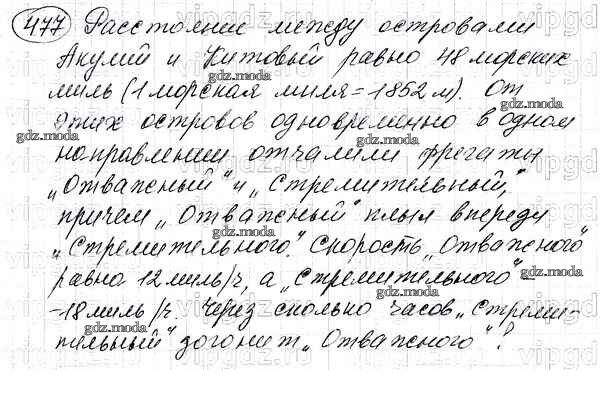 477 Расстояние между островами
Акулий и Китовый равно 48 морских
миль (1 морская миля = 1852 м). От
этих островов одновременно в одном
направлении отчалили фрегаты
„Отважный" и „Стремительный,"
причем „Отважный" плыл впереди
„Стремительного". Скорость „Отважного"
равна 12 миль/ч, а „Стремительного" –
-18 миль/ч. Через сколько часов „Стреми-
тельный" догонит „Отважного"?